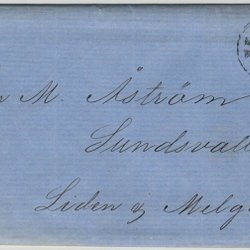 M. Åström
Sundsvall
Liden & Melg